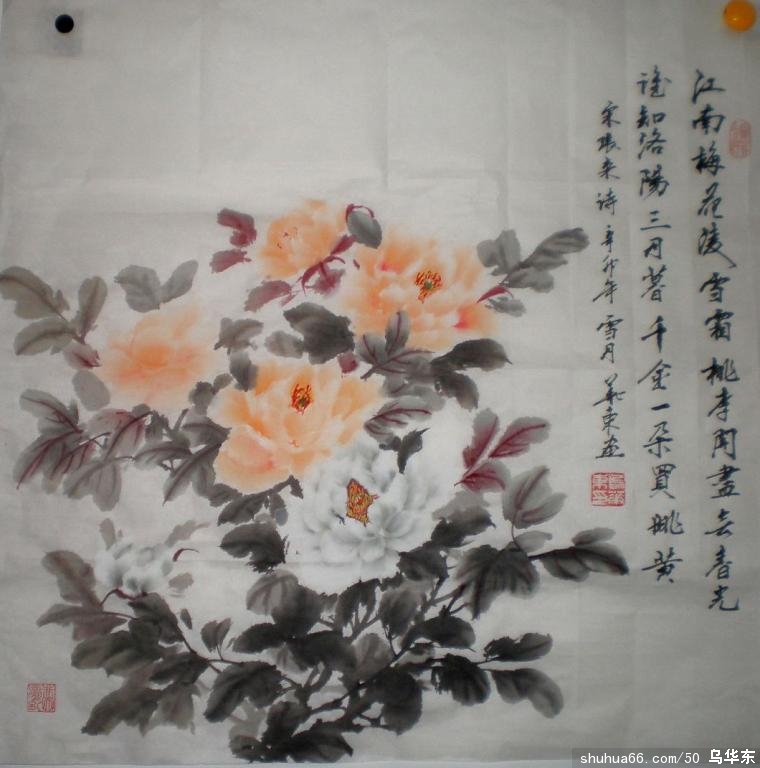 江南梅花凌雪霜桃李开尽無春光
谁知洛陽三月暮千金一朵買姚黄
宋張耒诗辛卯年雪月華東画
shuhua66.com/50 乌华东